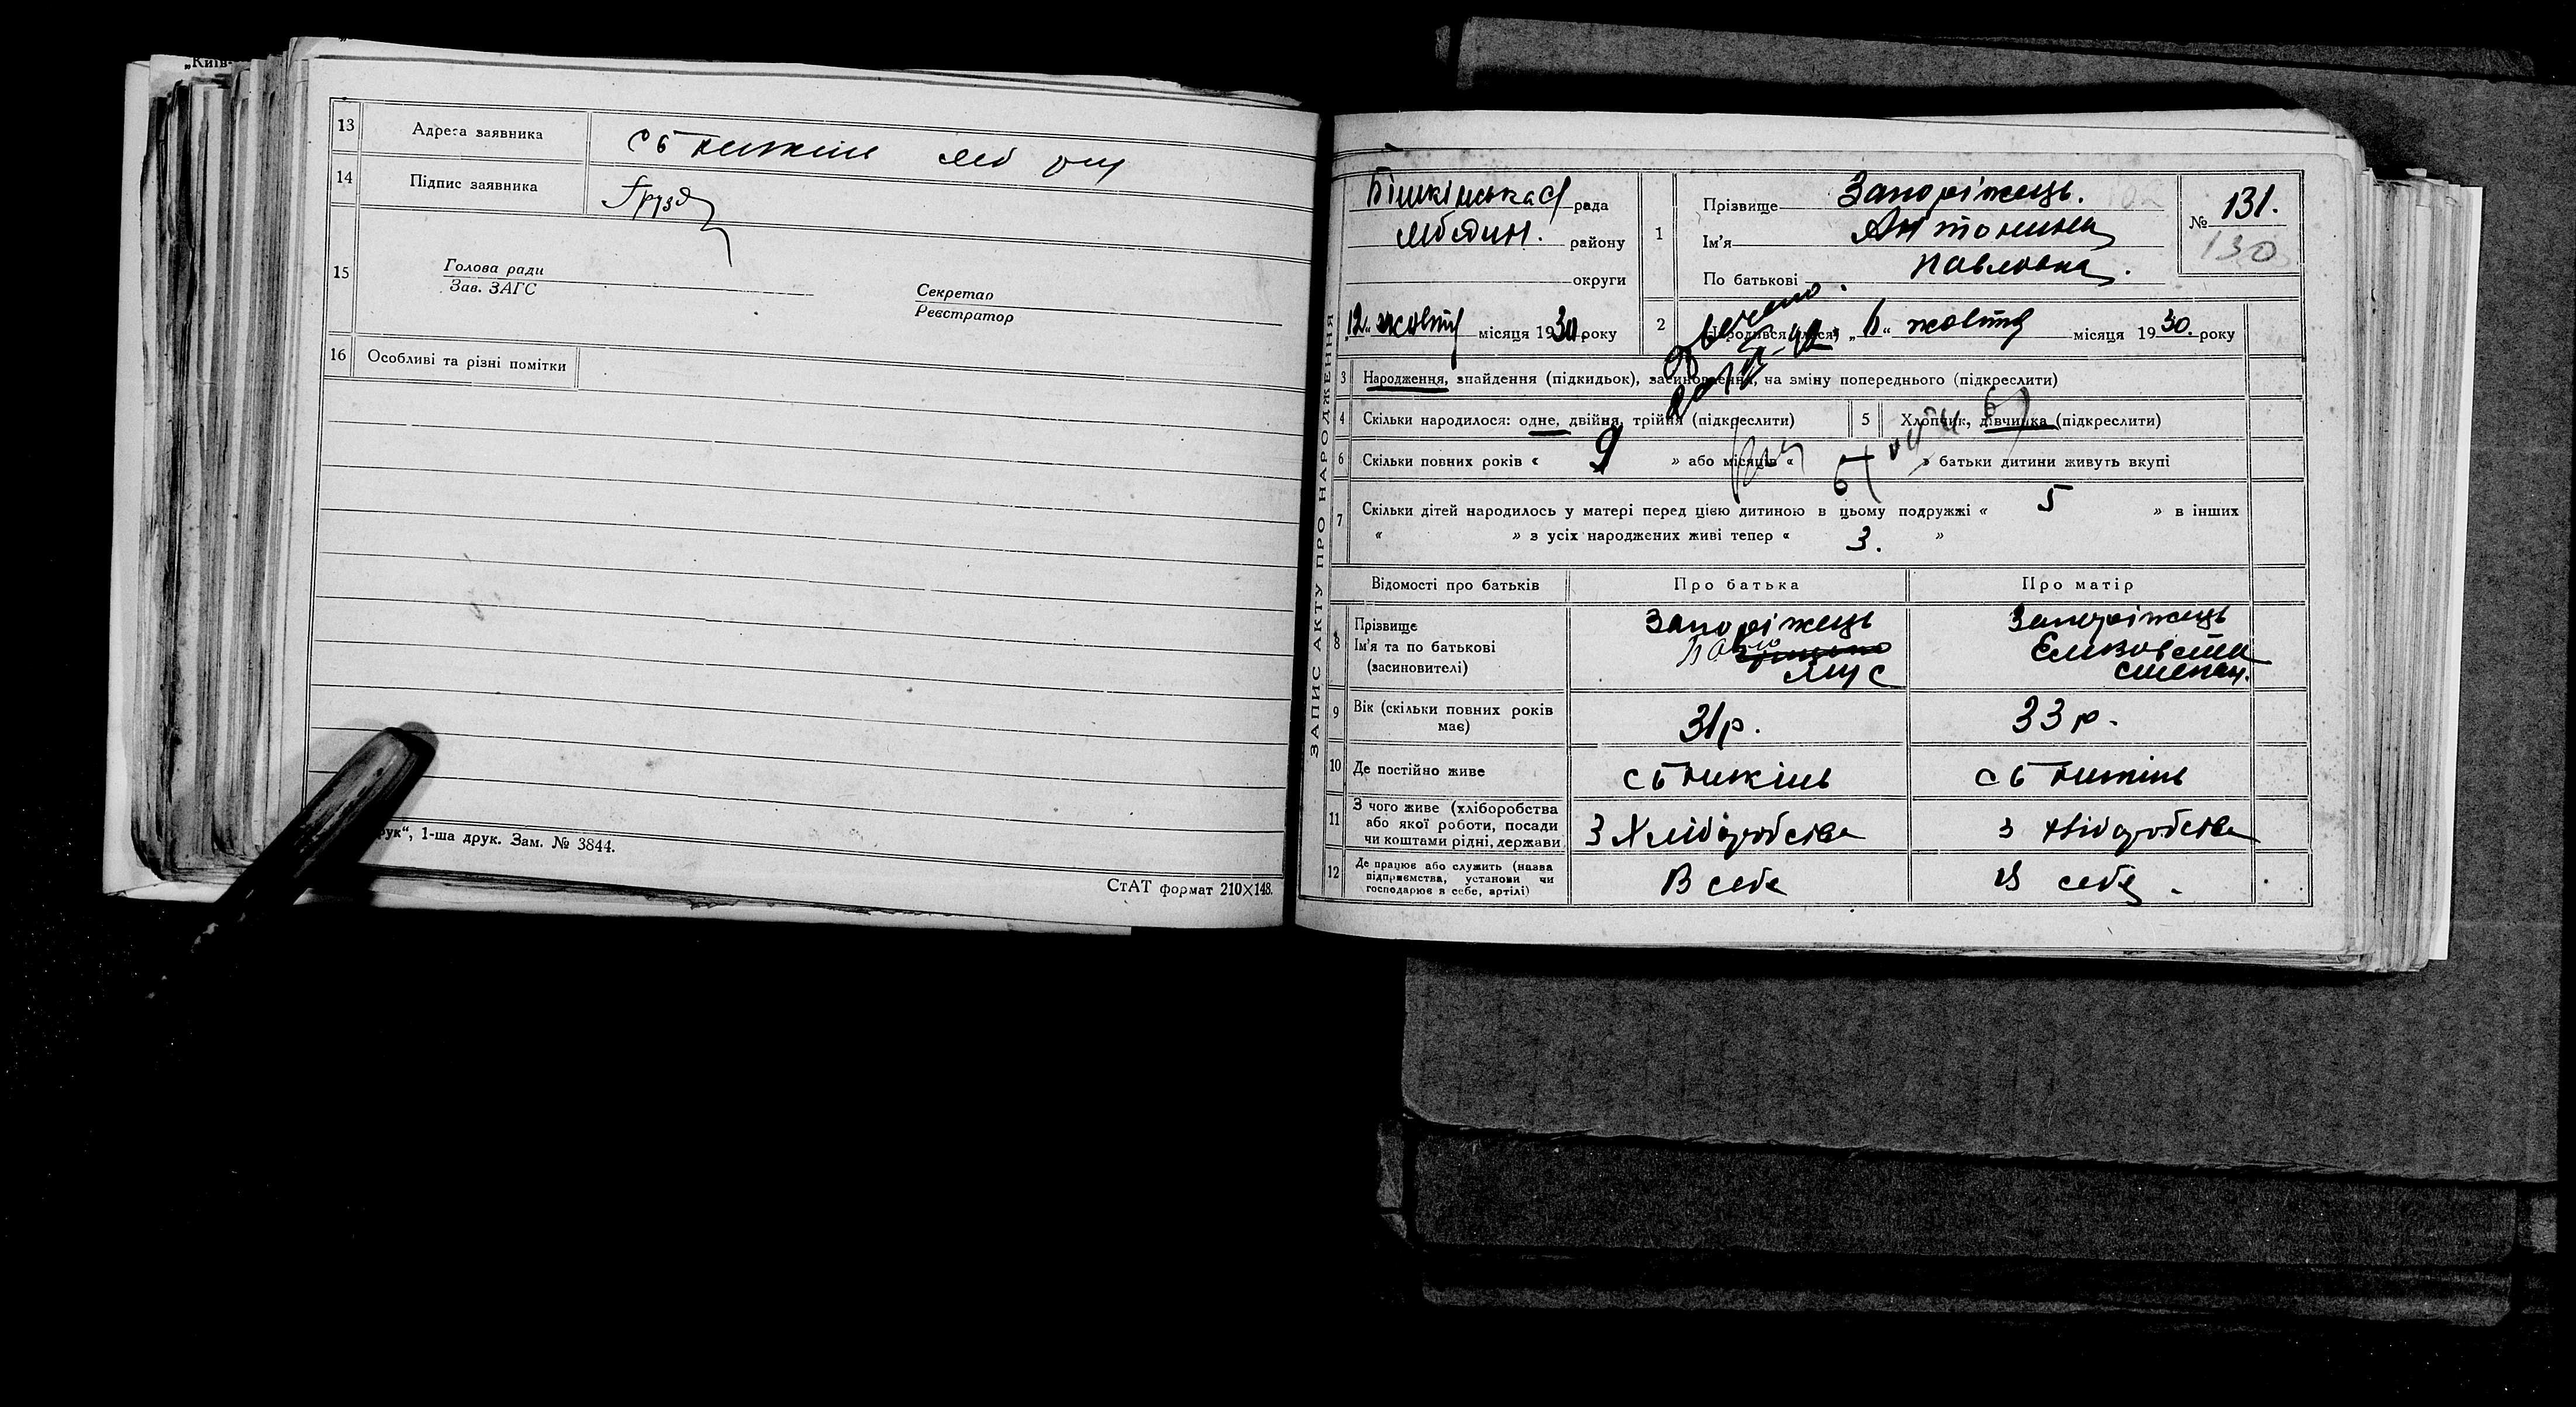 „Київ-
13 Адреса заявника с Бишкінь Леб
14 Підпис заявника
15 Голова ради
Зав. ЗАГС
Секретар
Реєстратор
16 Особливі та різні помітки
рук“, 1-ша друк. Зам. № 3844.
СтАТ формат 210×148.
ЗАПИС АКТУ ПРО НАРОДЖЕННЯ
Бишкінська с/ рада
Лебедин. району
округи
„12“ жовтня місяця 1930 року
1 Прізвище Запоріжець.
Ім'я Антонина
По батькові Павловна.
№ 131.
130
2 Народився (лася) „6“ жовтня місяця 1930. року
3 Народження, знайдення (підкидьок), засиновлення, на зміну попереднього (підкреслити)
4 Скільки народилося: одне, двійня, трійня (підкреслити)
5 Хлопчик, дівчинка (підкреслити)
6 Скільки повних років « 9 » або місяців « » батьки дитини живуть вкупі
7 Скільки дітей народилось у матері перед цією дитиною в цьому подружжі « 5 » в інших
« » з усіх народжених живі тепер « 3. »
Відомості про батьків Про батька Про матір
8 Прізвище Запоріжець Запоріжець
Ім'я та по батькові Павло Єлизавета
(засновителі) Степан.
9 Вік (скільки повних років має) 31 р. 33 р.
10 Де постійно живе с Бишкінь с Бишкінь
11 З чого живе (хліборобства
або якої роботи, посади
чи коштами рідні, держави З Хліборобства з хліборобства
12 Де працює або служить (назва
підприємства, установи чи
господарює в себе, артілі) В себе В себе.